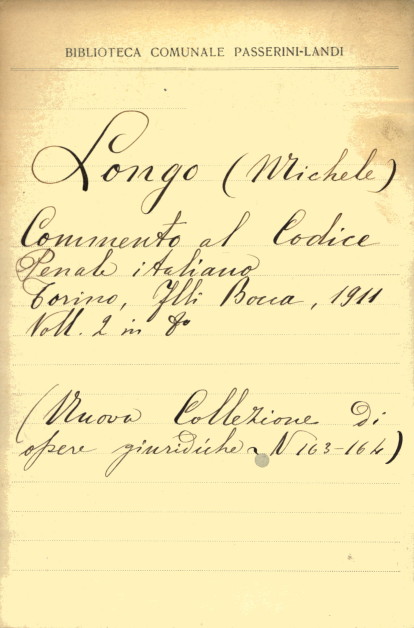 BIBLIOTECA COMUNALE PASSERINI-LANDI
Longo (Michele)
Commento al Codice
Penale italiano
Torino, Flli Bocca, 1911
Voll. 2 in 8º
(Nuova Collezione di
opere giuridiche - N 163-164)